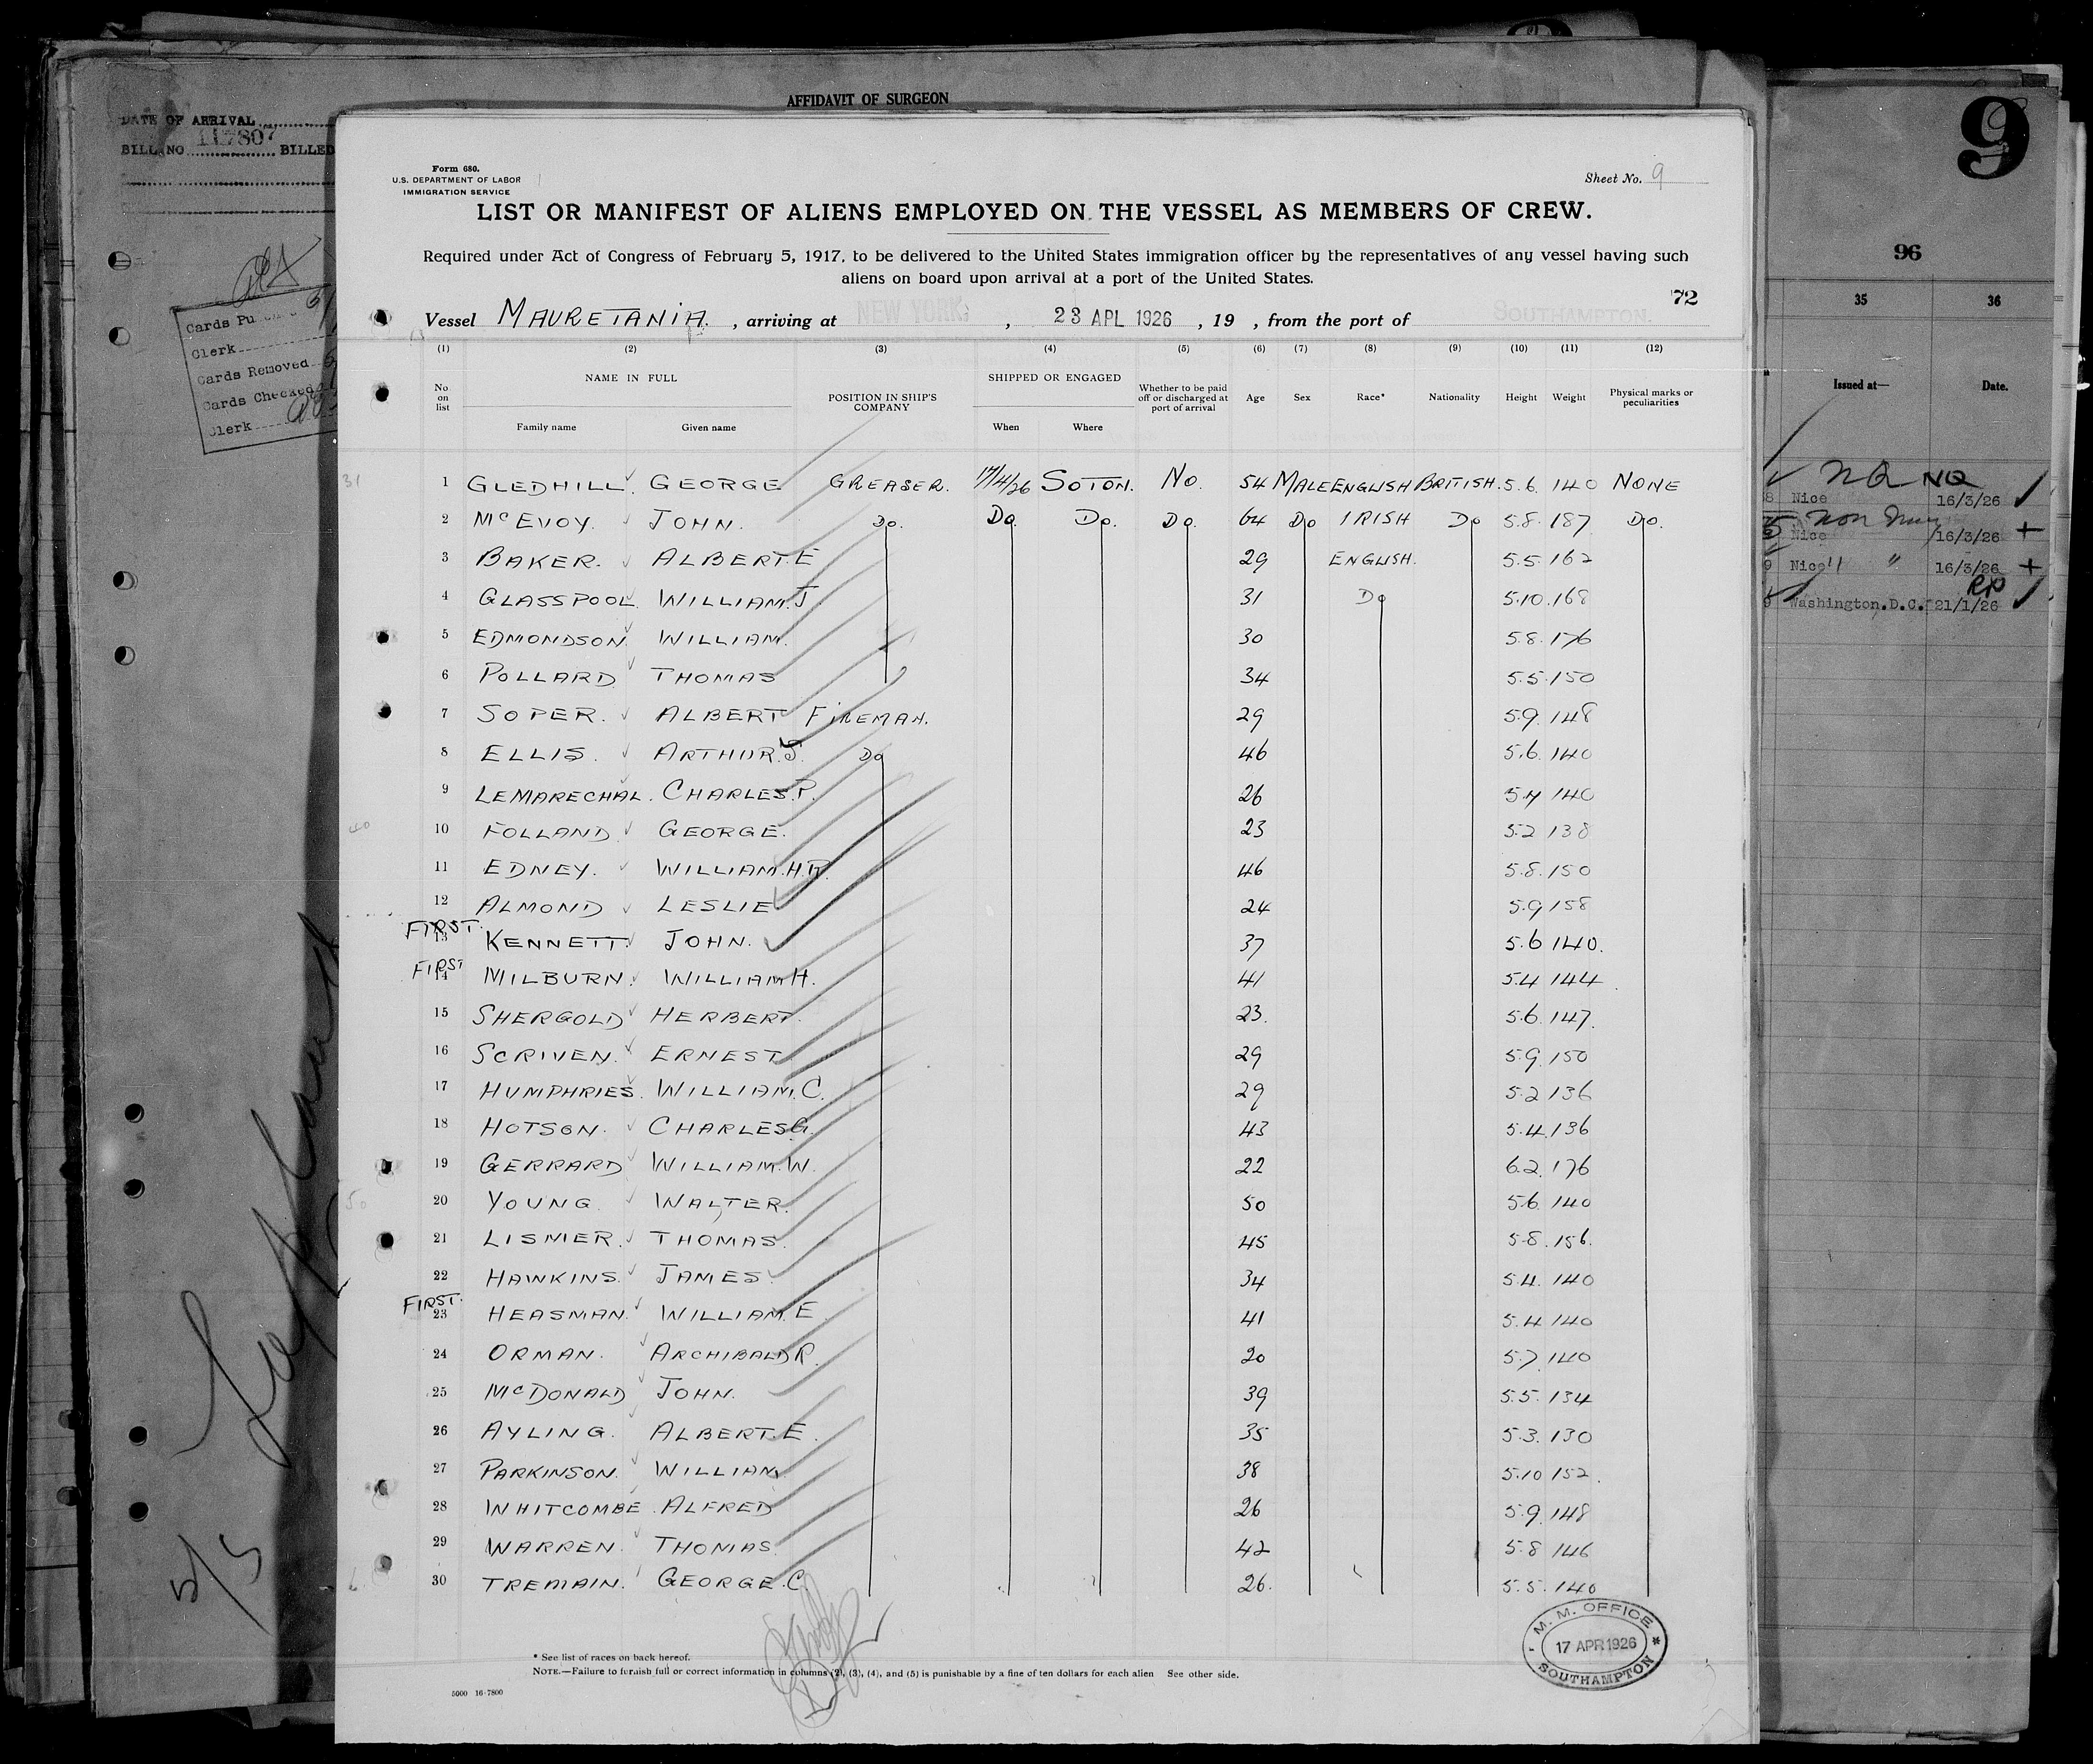 AFFIDAVIT OF SURGEON
DATE OF ARRIVAL
BILL NO 117807 BILLED
Cards Pu
Clerk
Cards Removed
Cards Checked
Clerk
5/5
9
96
35 36
Issued at— Date.
NQ NQ
8 Nice 16/3/26
Nice 16/3/26 +
9 Nice " " 16/3/26 +
RP
9 Washington.D.C. 21/1/26
Form 680.
U.S. DEPARTMENT OF LABOR
IMMIGRATION SERVICE
Sheet No. 9
LIST OR MANIFEST OF ALIENS EMPLOYED ON THE VESSEL AS MEMBERS OF CREW.
Required under Act of Congress of February 5, 1917, to be delivered to the United States immigration officer by the representatives of any vessel having such
aliens on board upon arrival at a port of the United States.
72
Vessel MAURETANIA. , arriving at NEW YORK , 23 APL 1926 , 19 , from the port of SOUTHAMPTON.
(1) (2) (3) (4) (5) (6) (7) (8) (9) (10) (11) (12)
No on list NAME IN FULL Family name Given name POSITION IN SHIP'S COMPANY SHIPPED OR ENGAGED When Where Whether to be paid off or discharged at port of arrival Age Sex Race* Nationality Height Weight Physical marks or peculiarities
31 1 GLEDHILL. GEORGE GREASER. 17/4/26 SOTON. No. 54 MALE ENGLISH BRITISH. 5.6. 140 NONE
2 McEVOY. JOHN. Do. Do. Do. Do. 64 Do IRISH Do 5.8. 187 Do.
3 BAKER. ALBERT.E 29 ENGLISH. 5.5. 162
4 GLASSPOOL. WILLIAM.J. 31 Do 5.10. 168
5 EDMONDSON. WILLIAM. 30 5.8. 176
6 POLLARD THOMAS 34 5.5. 150
7 SOPER. ALBERT FIREMAN. 29 5.9. 148
8 ELLIS. ARTHUR.S. Do 46 5.6. 140
9 LEMARECHAL. CHARLES.P. 26 5.4 140
40 10 FOLLAND GEORGE. 23 5.2 138
11 EDNEY. WILLIAM.H.R. 46 5.8. 150
12 ALMOND LESLIE 24 5.9 158
FIRST. 13 KENNETT. JOHN. 37 5.6 140.
FIRST 14 MILBURN. WILLIAM H. 41 5.4 144.
15 SHERGOLD HERBERT. 23. 5.6. 147.
16 SCRIVEN. ERNEST 29 5.9. 150
17 HUMPHRIES. WILLIAM.C. 29 5.2 136
18 HOTSON. CHARLES G. 43 5.4. 136
19 GERRARD WILLIAM.W. 22 6.2. 176
50 20 YOUNG WALTER. 50 5.6. 140
21 LISMER. THOMAS. 45 5.8. 156.
22 HAWKINS. JAMES. 34 5.4. 140
FIRST. 23 HEASMAN. WILLIAM.E 41 5.4 140
24 ORMAN. ARCHIBALD R. 20 5.7. 140
25 McDONALD JOHN. 39 5.5. 134
26 AYLING. ALBERT.E. 35 5.3. 130
27 PARKINSON. WILLIAM. 38 5.10 152.
28 WHITCOMBE. ALFRED 26 5.9. 148
29 WARREN. THOMAS. 42 5.8 146
30 TREMAIN. GEORGE.C. 26. 5.5. 140
M. M. OFFICE
17 APR 1926
SOUTHAMPTON
* See list of races on back hereof.
NOTE.—Failure to furnish full or correct information in columns (2), (3), (4), and (5) is punishable by a fine of ten dollars for each alien See other side.
5000 16-7800